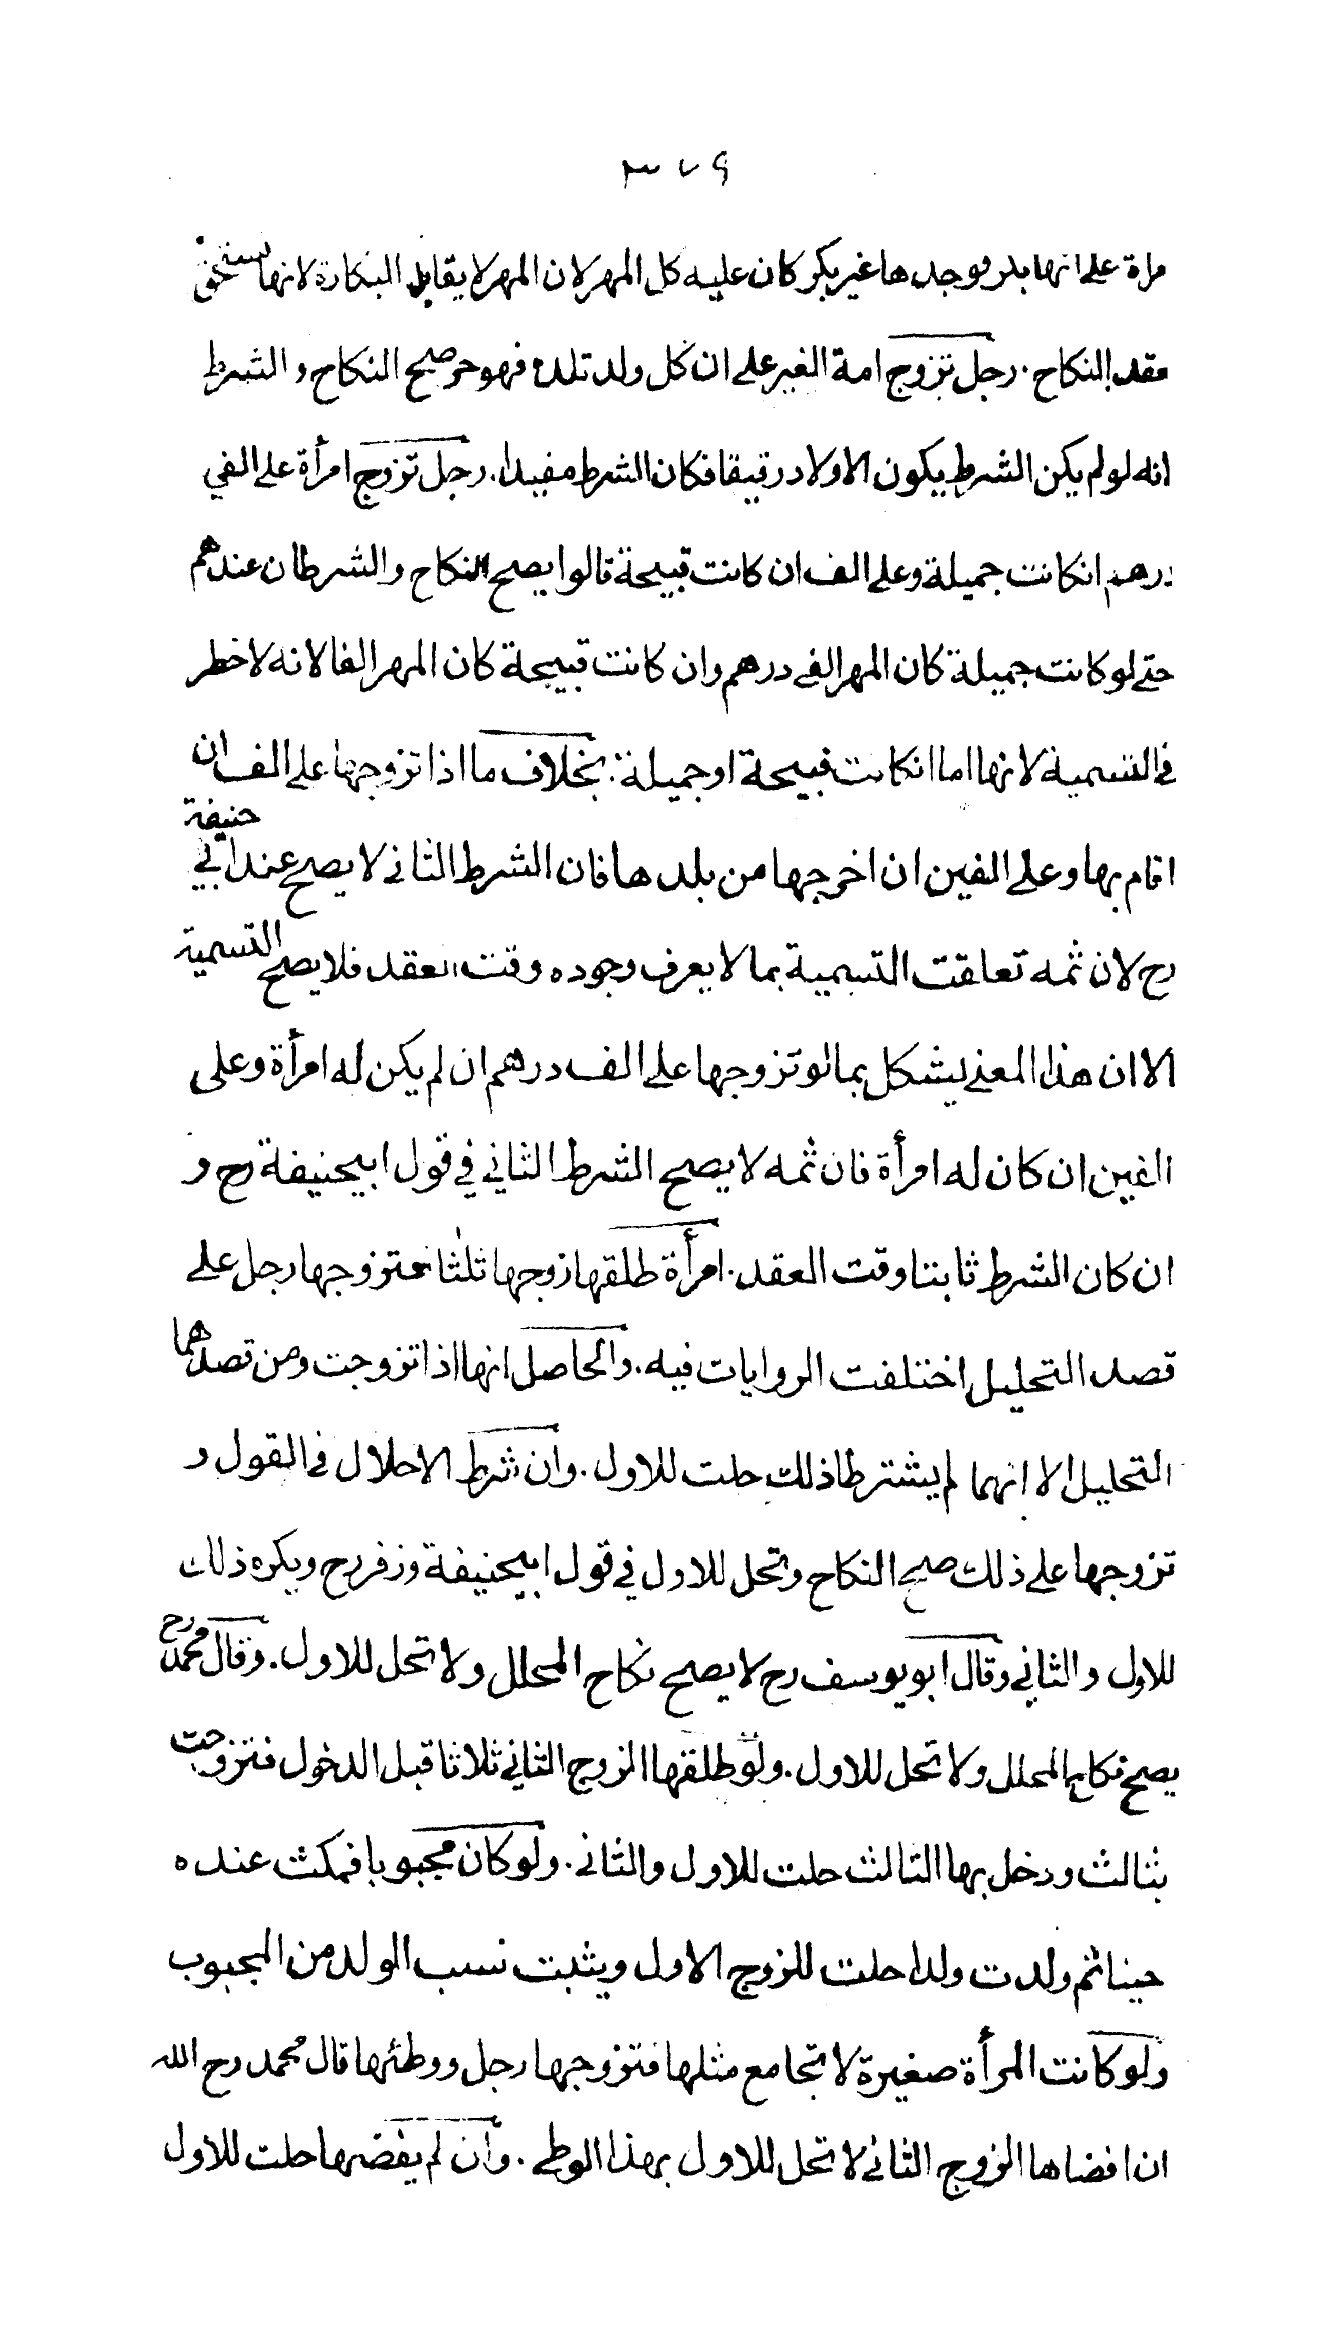 ٣٧٤
مراة على انها بكر فوجدها غير بكر كان عليه كل المهر لان المهر لا يقابل البكارة لانها تستحق
عقد النكاح . رجل تزوج امة الغير على ان كل ولد تلده فهو حر صح النكاح و الشرط
انه لو لم يكن الشرط يكون الاولاد رقيقا فكان الشرط مفيدا . رجل تزوج امرأة على الفي
درهم انكانت جميلة وعلى الف ان كانت قبيحة قالوا يصح النكاح والشرطان عندهم
حتى لو كانت جميلة كان المهر الفي درهم وان كانت قبيحة كان المهر الفا لانه لا خطر
في التسمية لانها اما انكانت قبيحة او جميلة : بخلاف ما اذا تزوجها على الف ان
اقام بها وعلى الفين ان اخرجها من بلدها فان الشرط الثاني لا يصح عند ابي حنيفة
رح لان ثمه تعلقت التسمية بما لا يعرف وجوده وقت العقد فلا يصح التسمية
الا ان هذا المعنى يشكل بما لو تزوجها على الف درهم ان لم يكن له امرأة وعلى
الفين ان كان له امرأة فان ثمه لا يصح الشرط الثاني في قول ابيحنيفة رح و
ان كان الشرط ثابتا وقت العقد . امرأة طلقها زوجها ثلثا فتزوجها رجل على
قصد التحليل اختلفت الروايات فيه . والحاصل انها اذا تزوجت ومن قصدهما
التحليل الا انهما لم يشترطا ذلك حلت للاول . وان شرط الاحلال في القول و
تزوجها على ذلك صح النكاح وتحل للاول في قول ابيحنيفة وزفر رح ويكره ذلك
للاول والثاني وقال ابو يوسف رح لا يصح نكاح المحلل ولا تحل للاول . وقال محمد رح
يصح نكاح المحلل ولا تحل للاول . ولو طلقها الزوج الثاني ثلاثا قبل الدخول فتزوجت
بثالث ودخل بها الثالث حلت للاول والثاني . ولو كان مجبوبا فمكث عنده
حينا ثم ولدت ولدا حلت للزوج الاول ويثبت نسب الولد من المجبوب
ولو كانت المرأة صغيرة لا تجامع مثلها فتزوجها رجل ووطئها قال محمد رح الله
ان افضاها الزوج الثاني لا تحل للاول بهذا الوطي . وان لم يفضها حلت للاول